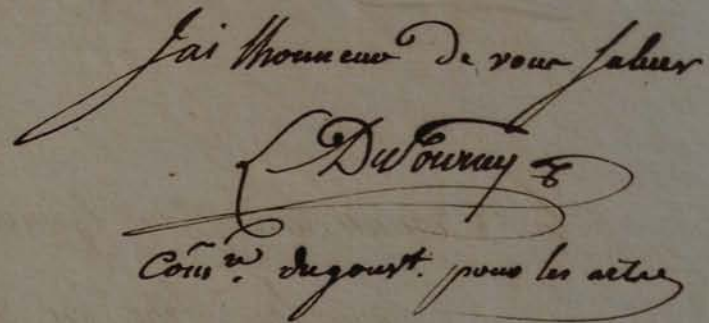 J'ai lhonneur de vous saluer
L Dufourny
Com.re du gouvt. pour les artes